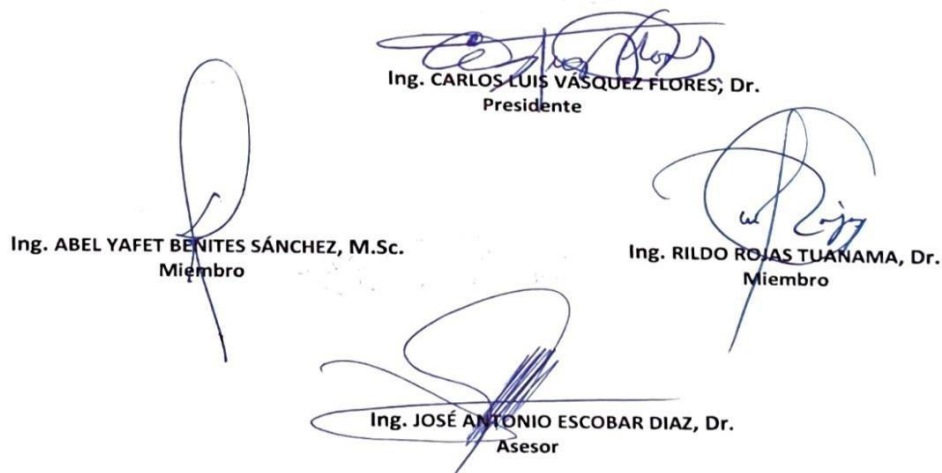 Ing. CARLOS LUIS VÁSQUEZ FLORES, Dr.
Presidente
Ing. ABEL YAFET BENITES SÁNCHEZ, M.Sc.
Miembro
Ing. RILDO ROJAS TUANAMA, Dr.
Miembro
Ing. JOSÉ ANTONIO ESCOBAR DIAZ, Dr.
Asesor